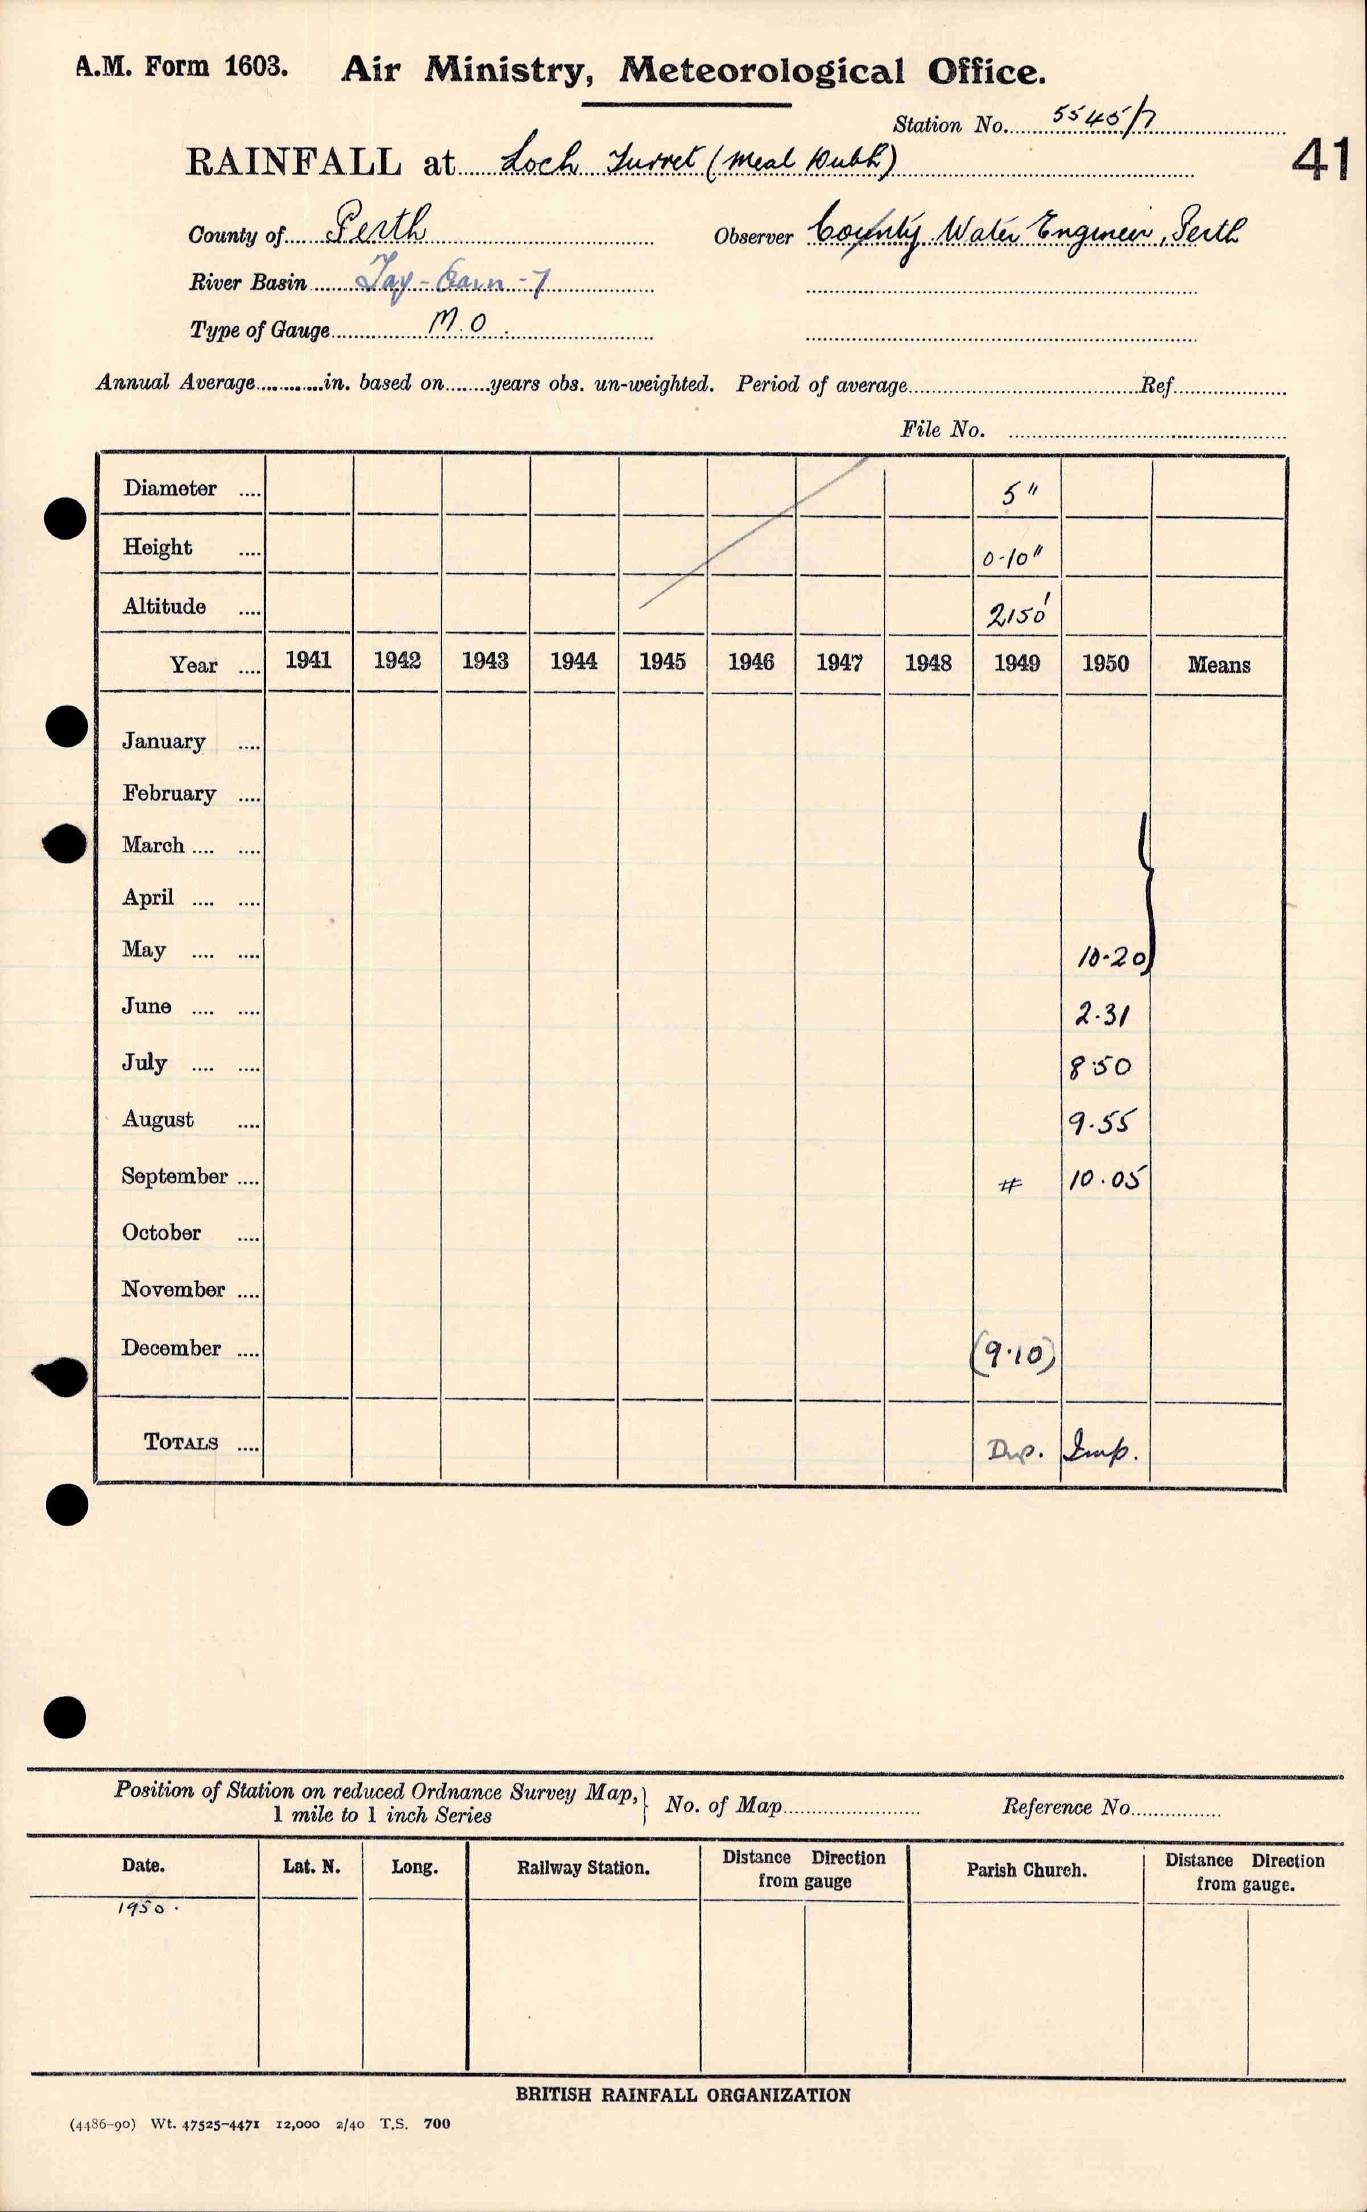 A.M. Form 1603. Air Ministry, Meteorological Office.
Station No. 5545/7
41
RAINFALL at Loch Turret (Meal Dubh)
County of Perth Observer County Water Engineer, Perth
River Basin Tay - Earn - 7
Type of Gauge M.O.
Annual Average in. based on years obs. un-weighted. Period of average Ref.
File No.
Diameter 5"
Height 0-10"
Altitude 2150'
Year 1941 1942 1943 1944 1945 1946 1947 1948 1949 1950 Means
January
February
March
April
May 10.20 }
June 2.31
July 8.50
August 9.55
September # 10.05
October
November
December (9.10)
TOTALS Imp.
Position of Station on reduced Ordnance Survey Map, } No. of Map Reference No.
1 mile to 1 inch Series
Date. Lat. N. Long. Railway Station. Distance Direction from gauge Parish Church. Distance Direction from gauge.
1950.
BRITISH RAINFALL ORGANIZATION
(4486-90) Wt. 47525-4471 12,000 2/40 T.S. 700